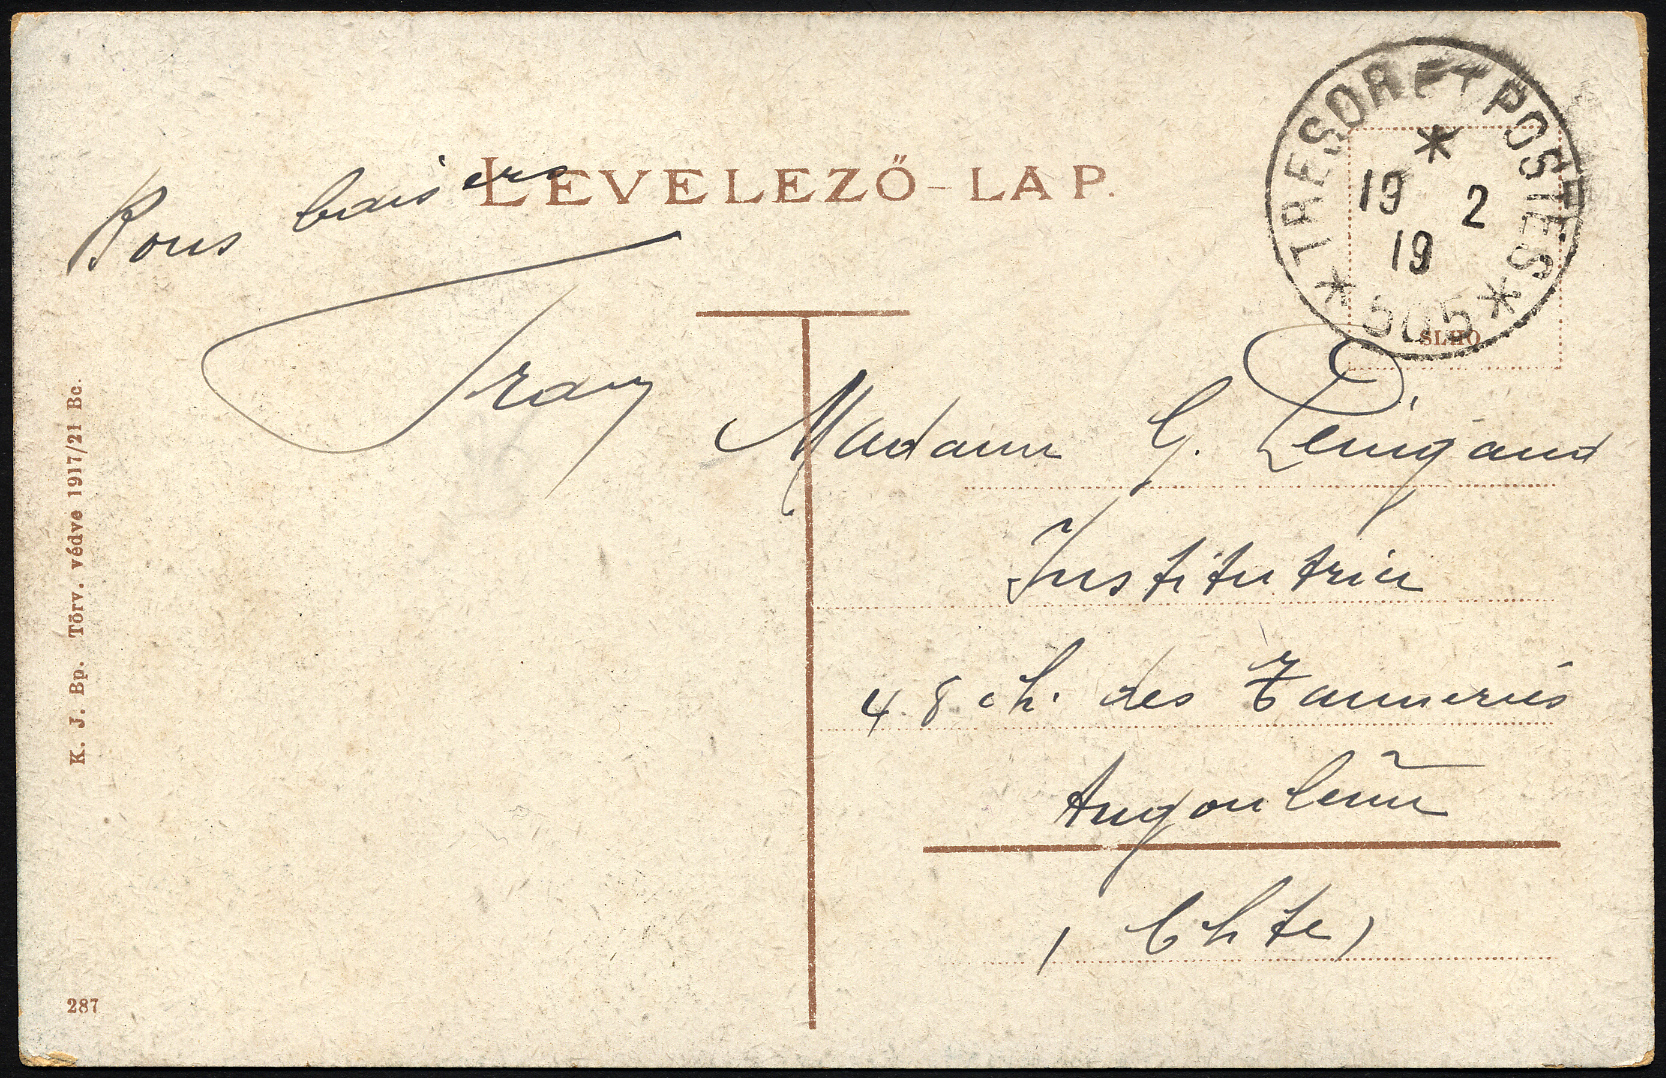 LEVELEZŐ-LAP.
TRESOR ET POSTES
19 2
19
* 505 *
Bons baisers
Madame G.
Institutrice
48 ch. des Tanneries
Angoulême
(Chte)
K. J. Bp. Törv. védve 1917/21 Bc.
287